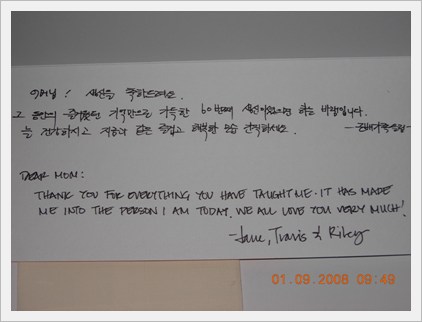 어머님! 생신을 축하드려요.
그 동안의 즐거웠던 기억만으로 가득한 60번째 생신이었으면 하는 바램입니다.
늘 건강하시고 지금과 같은 즐겁고 행복한 모습 간직하세요.
DEAR MOM:
THANK YOU FOR EVERYTHING YOU HAVE TAUGHT ME. IT HAS MADE
ME INTO THE PERSON I AM TODAY. WE ALL LOVE YOU VERY MUCH!
-Jane, Travis & Riley
01.09.2008 09:49